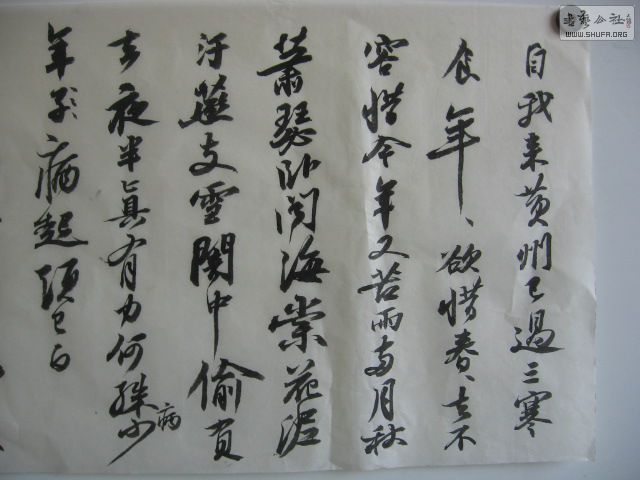 自我来黄州已過三寒
食年、欲惜春、去不
容惜今年又苦雨两月秋
蕭瑟卧闻海棠花泥
汙燕支雪闇中偷負
去夜半真有力何殊少
病
年子病起頭已白
書藝公社
WWW.SHUFA.ORG